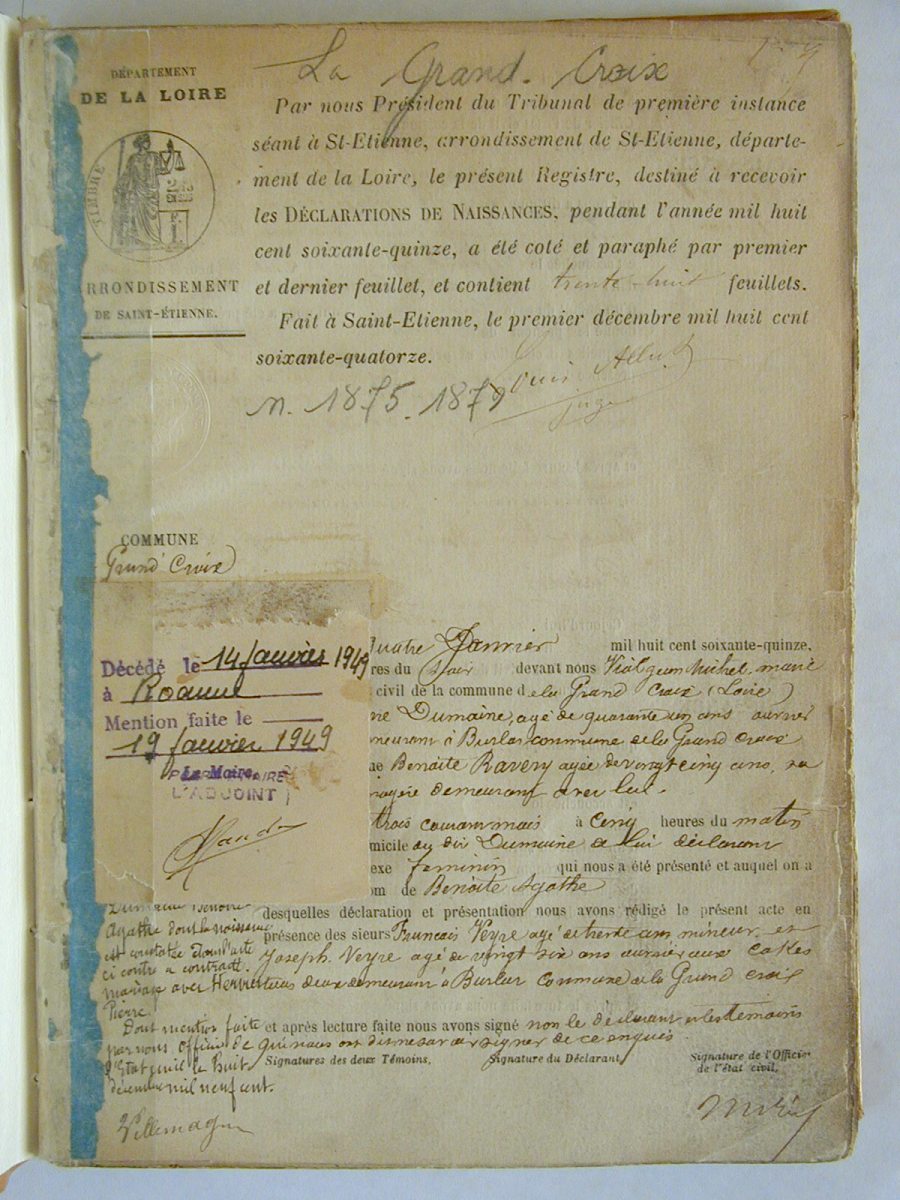 La Grand. Croix
DÉPARTEMENT
DE LA LOIRE
TIMBRE
ARRONDISSEMENT
DE SAINT-ÉTIENNE.
Par nous Président du Tribunal de première instance
séant à St-Etienne, arrondissement de St-Etienne, départe-
ment de la Loire, le présent Registre, destiné à recevoir
les DÉCLARATIONS DE NAISSANCES, pendant l'année mil huit
cent soixante-quinze, a été coté et paraphé par premier
et dernier feuillet, et contient trente-huit feuillets.
Fait à Saint-Etienne, le premier décembre mil huit cent
soixante-quatorze.
juge
N. 1875. 1879
COMMUNE
Grand' Croix
Décédé le 14 Janvier 1949
à Roanne
Mention faite le
19 Janvier 1949
Le Maire,
L'ADJOINT
quatre Janvier mil huit cent soixante-quinze,
res du Soir devant nous Vial jean Michel. marie
civil de la commune de la Grand Croix (Loire)
Dumaine, agé de quarante un ans ouvrier
meurant à Burlat commune de la Grand Croix
Benoite Ravery agée de vingt cinq ans, sa
nagère demeurant avec lui.
trois courant mois à Cinq heures du matin
omicile du dit Dumaine à lui déclarant
exe feminin qui nous a été présenté et auquel on a
om de Benoite Agathe
desquelles déclaration et présentation nous avons rédigé le présent acte en
présence des sieurs Francois Veyre agé de trente ans, mineur, et
Joseph. Veyre agé de vingt six ans ouvrier aux cokes
tous deux demeurant à Burlat Commune de la Grand Croix
et après lecture faite nous avons signé non le déclarant et les temoins
qui nous ont dit ne savoir signer de ce enquis.
Signatures des deux Témoins.
Signature du Déclarant
Signature de l'Officier
de l'état civil,
Dumaine Benoite
Agathe dont la naissance
est constatée dans l'acte
ci contre a contracté
mariage avec Hervier
Pierre
Dont mention faite
par nous officier de
l'Etat civil le huit
décembre mil neuf cent.
Villemagne